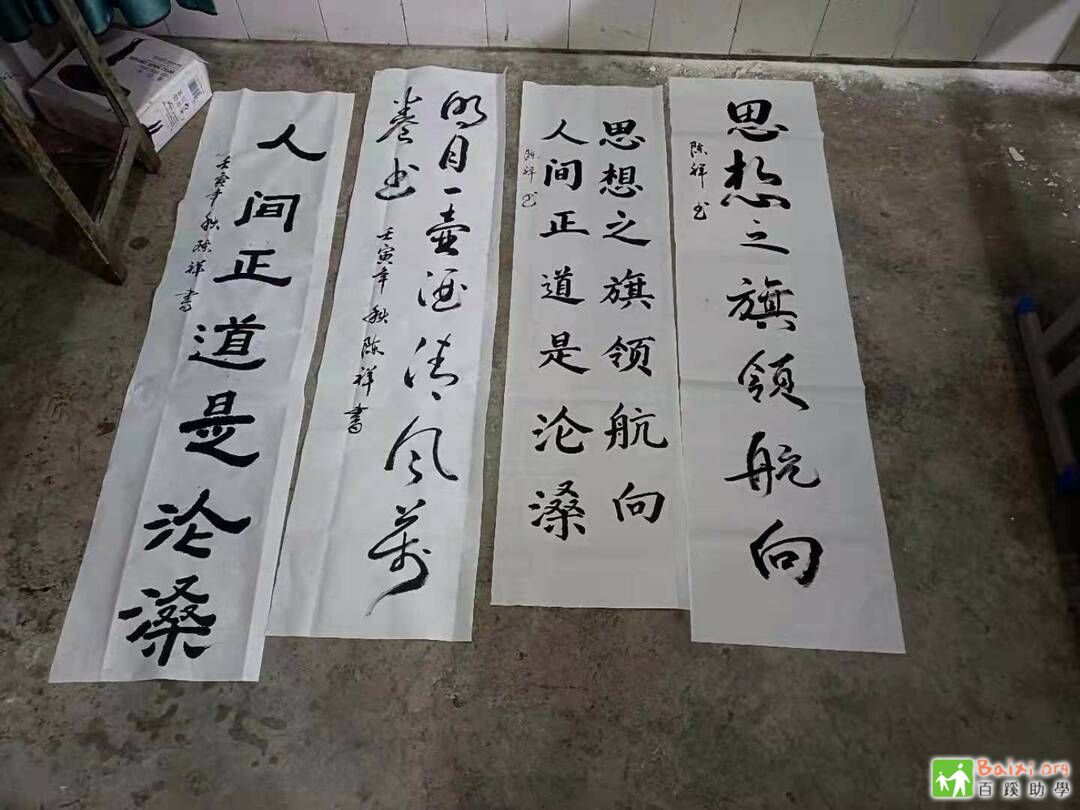 思想之旗领航向
陈祥书
思想之旗领航向
人间正道是沧桑
陈祥书
明月一壺酒清风萬
卷书
壬寅年秋陈祥書
人间正道是沧桑
壬寅年秋陈祥書
Baixi.org
百蹊助學